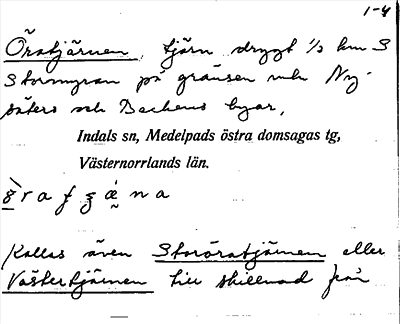 1-4
Öratjärnen, tjärn drygt 1/2 km S
Stormyran på gränsen mln Ny-
säters och Backens byar,
Indals sn, Medelpads östra domsagas tg,
Västernorrlands län.
Kallas även Störöratjärnen eller
Västertjärnen till skillnad från